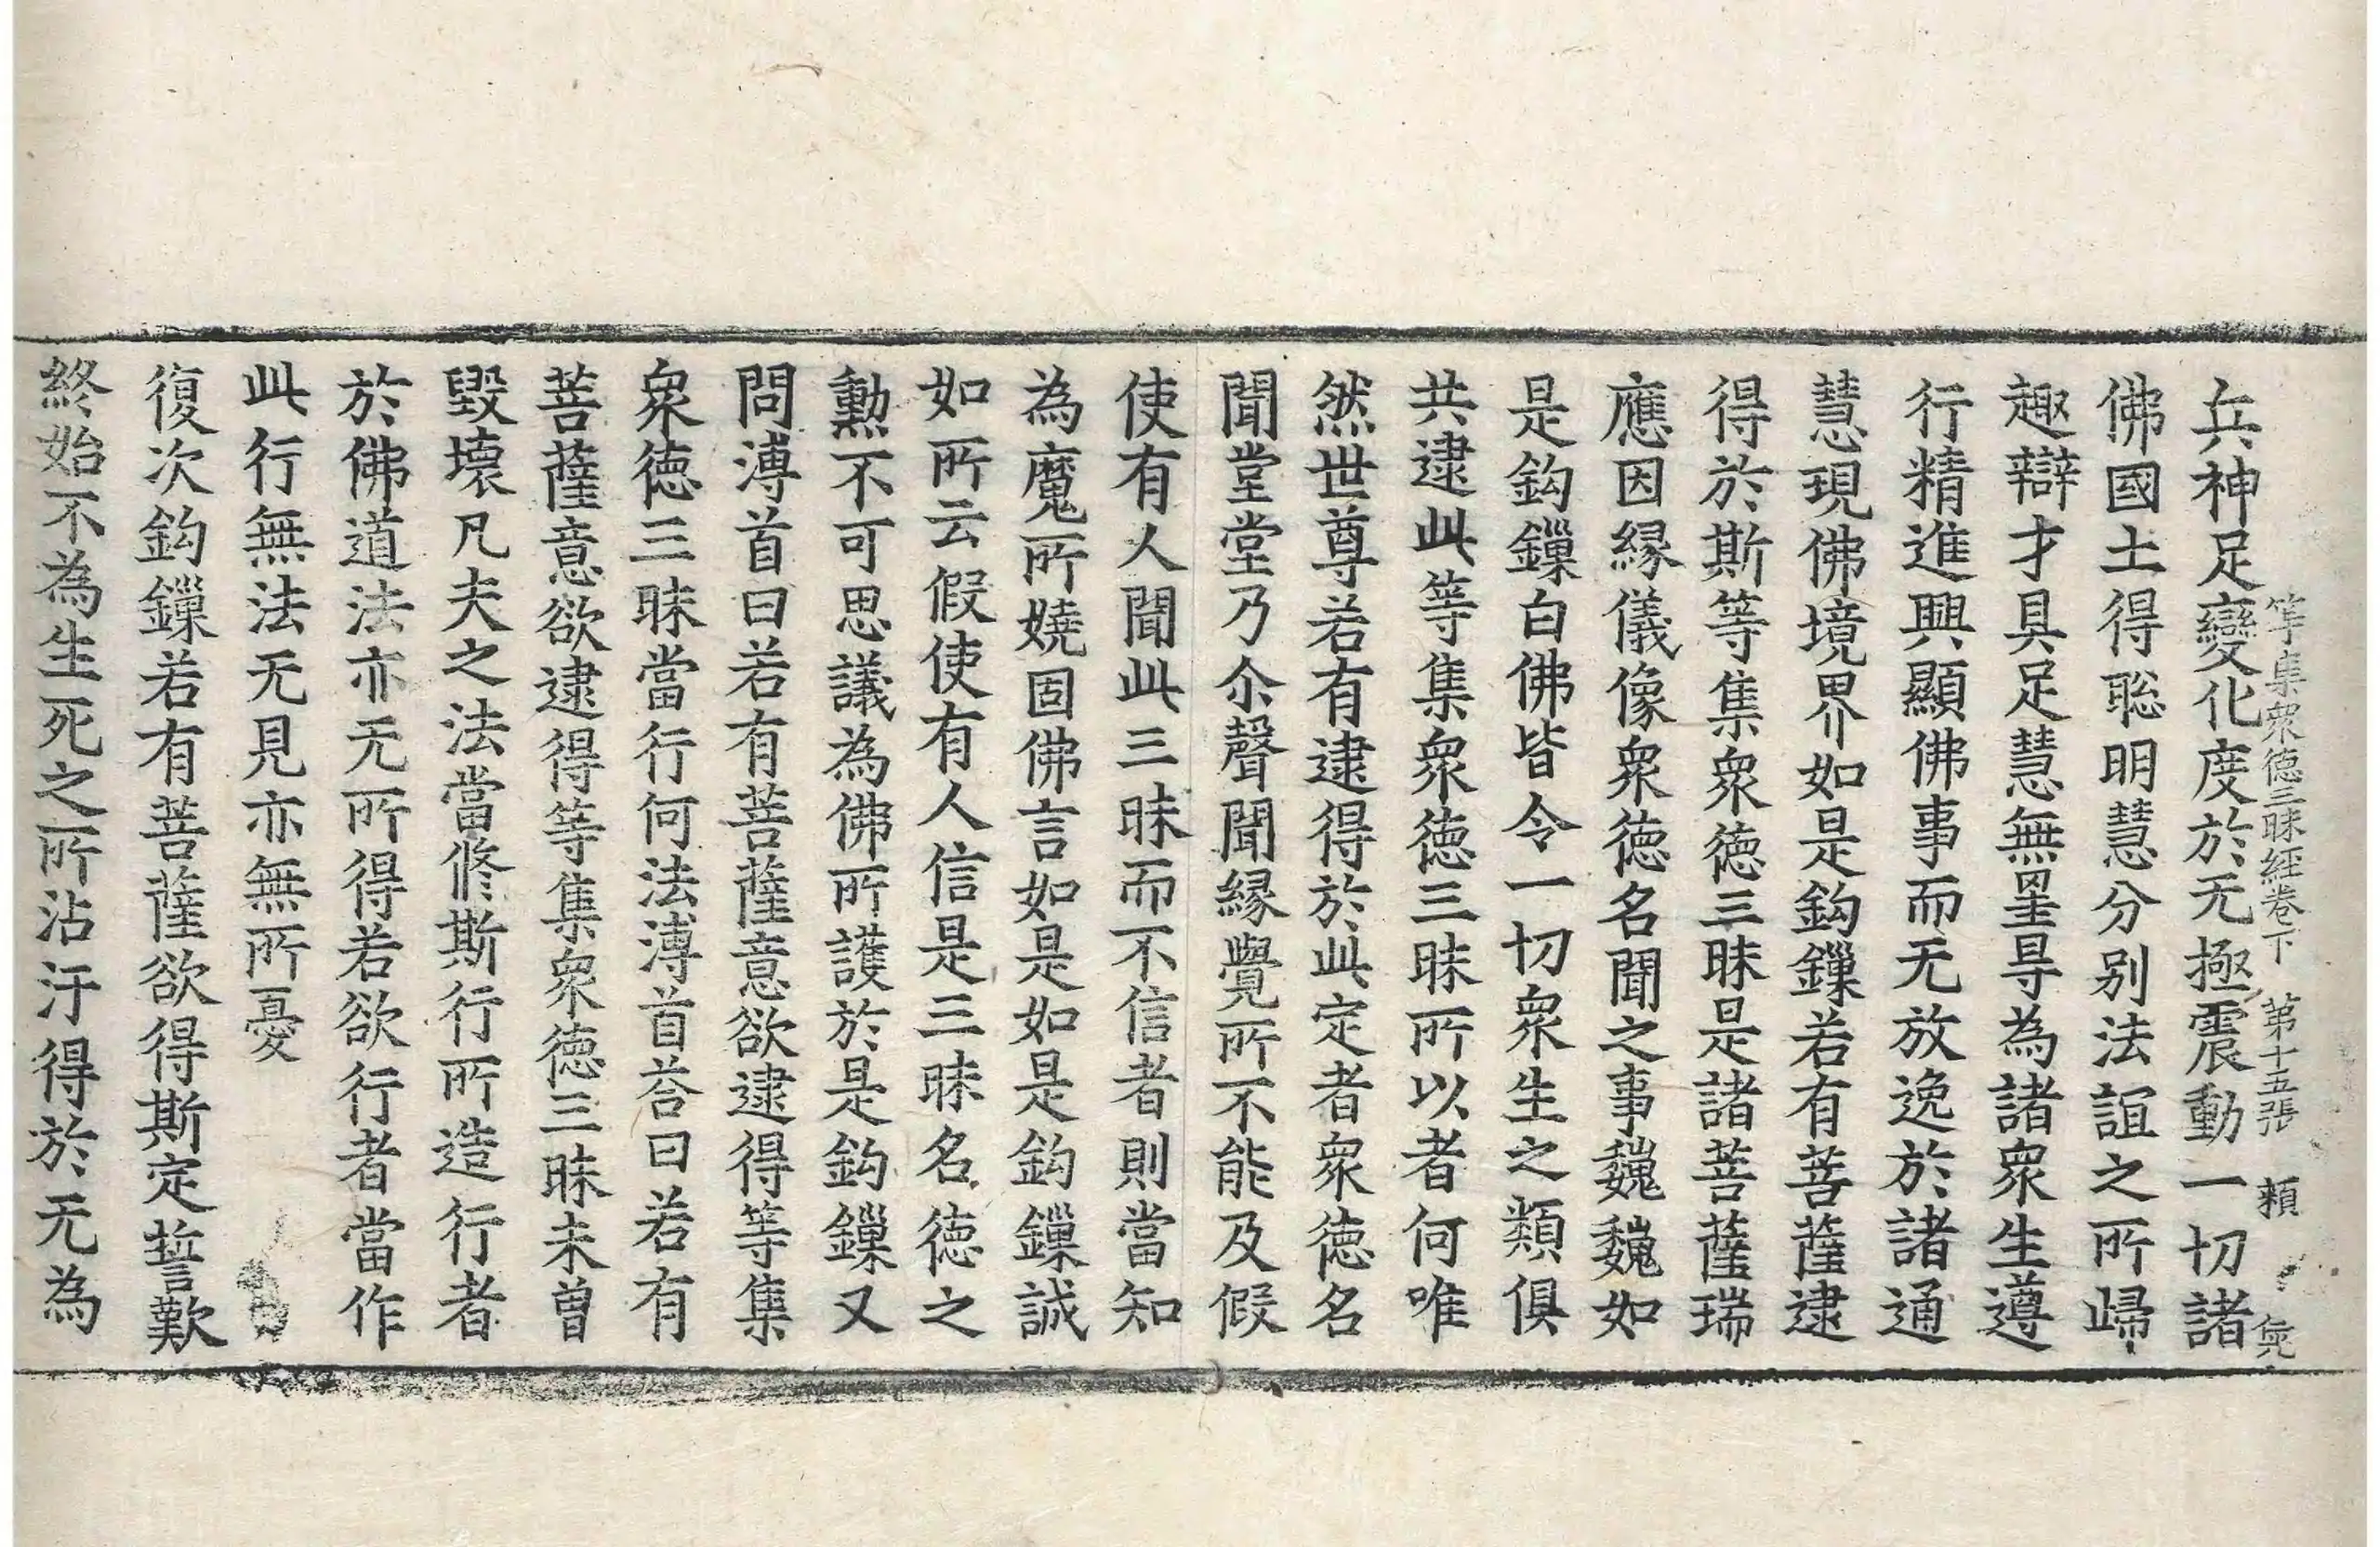 等集衆德三昧經卷下 第十五張 類
兵神足變化度於无極震動一切諸
佛國土得聡明慧分別法誼之所歸
趣辯才具足慧無罣㝵為諸衆生遵
行精進興顯佛事而无放逸於諸通
慧現佛境界如是鈎鏁若有菩薩逮
得於斯等集衆德三昧是諸菩薩瑞
應因緣儀像衆德名聞之事巍巍如
是鈎鏁白佛皆令一切衆生之類俱
共逮此等集衆德三昧所以者何唯
然世尊若有逮得於此定者衆德名
聞堂堂乃尒聲聞緣覺所不能及假
使有人聞此三昧而不信者則當知
為魔所嬈固佛言如是如是鈎鏁誠
如所云假使有人信是三昧名德之
勲不可思議為佛所護於是鈎鏁又
問溥首曰若有菩薩意欲逮得等集
衆德三昧當行何法溥首荅曰若有
菩薩意欲逮得等集衆德三昧未曾
毀壞凡夫之法當修斯行所造行者
於佛道法亦无所得若欲行者當作
此行無法无見亦無所憂
復次鈎鏁若有菩薩欲得斯定誓歎
終始不為生死之所沾汙得於无為